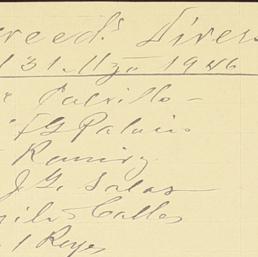 creeds Divers
131 Mzo 1946
Calvillo -
FG Palacio
Ramirz
J G. Salas
Callos
Reyes